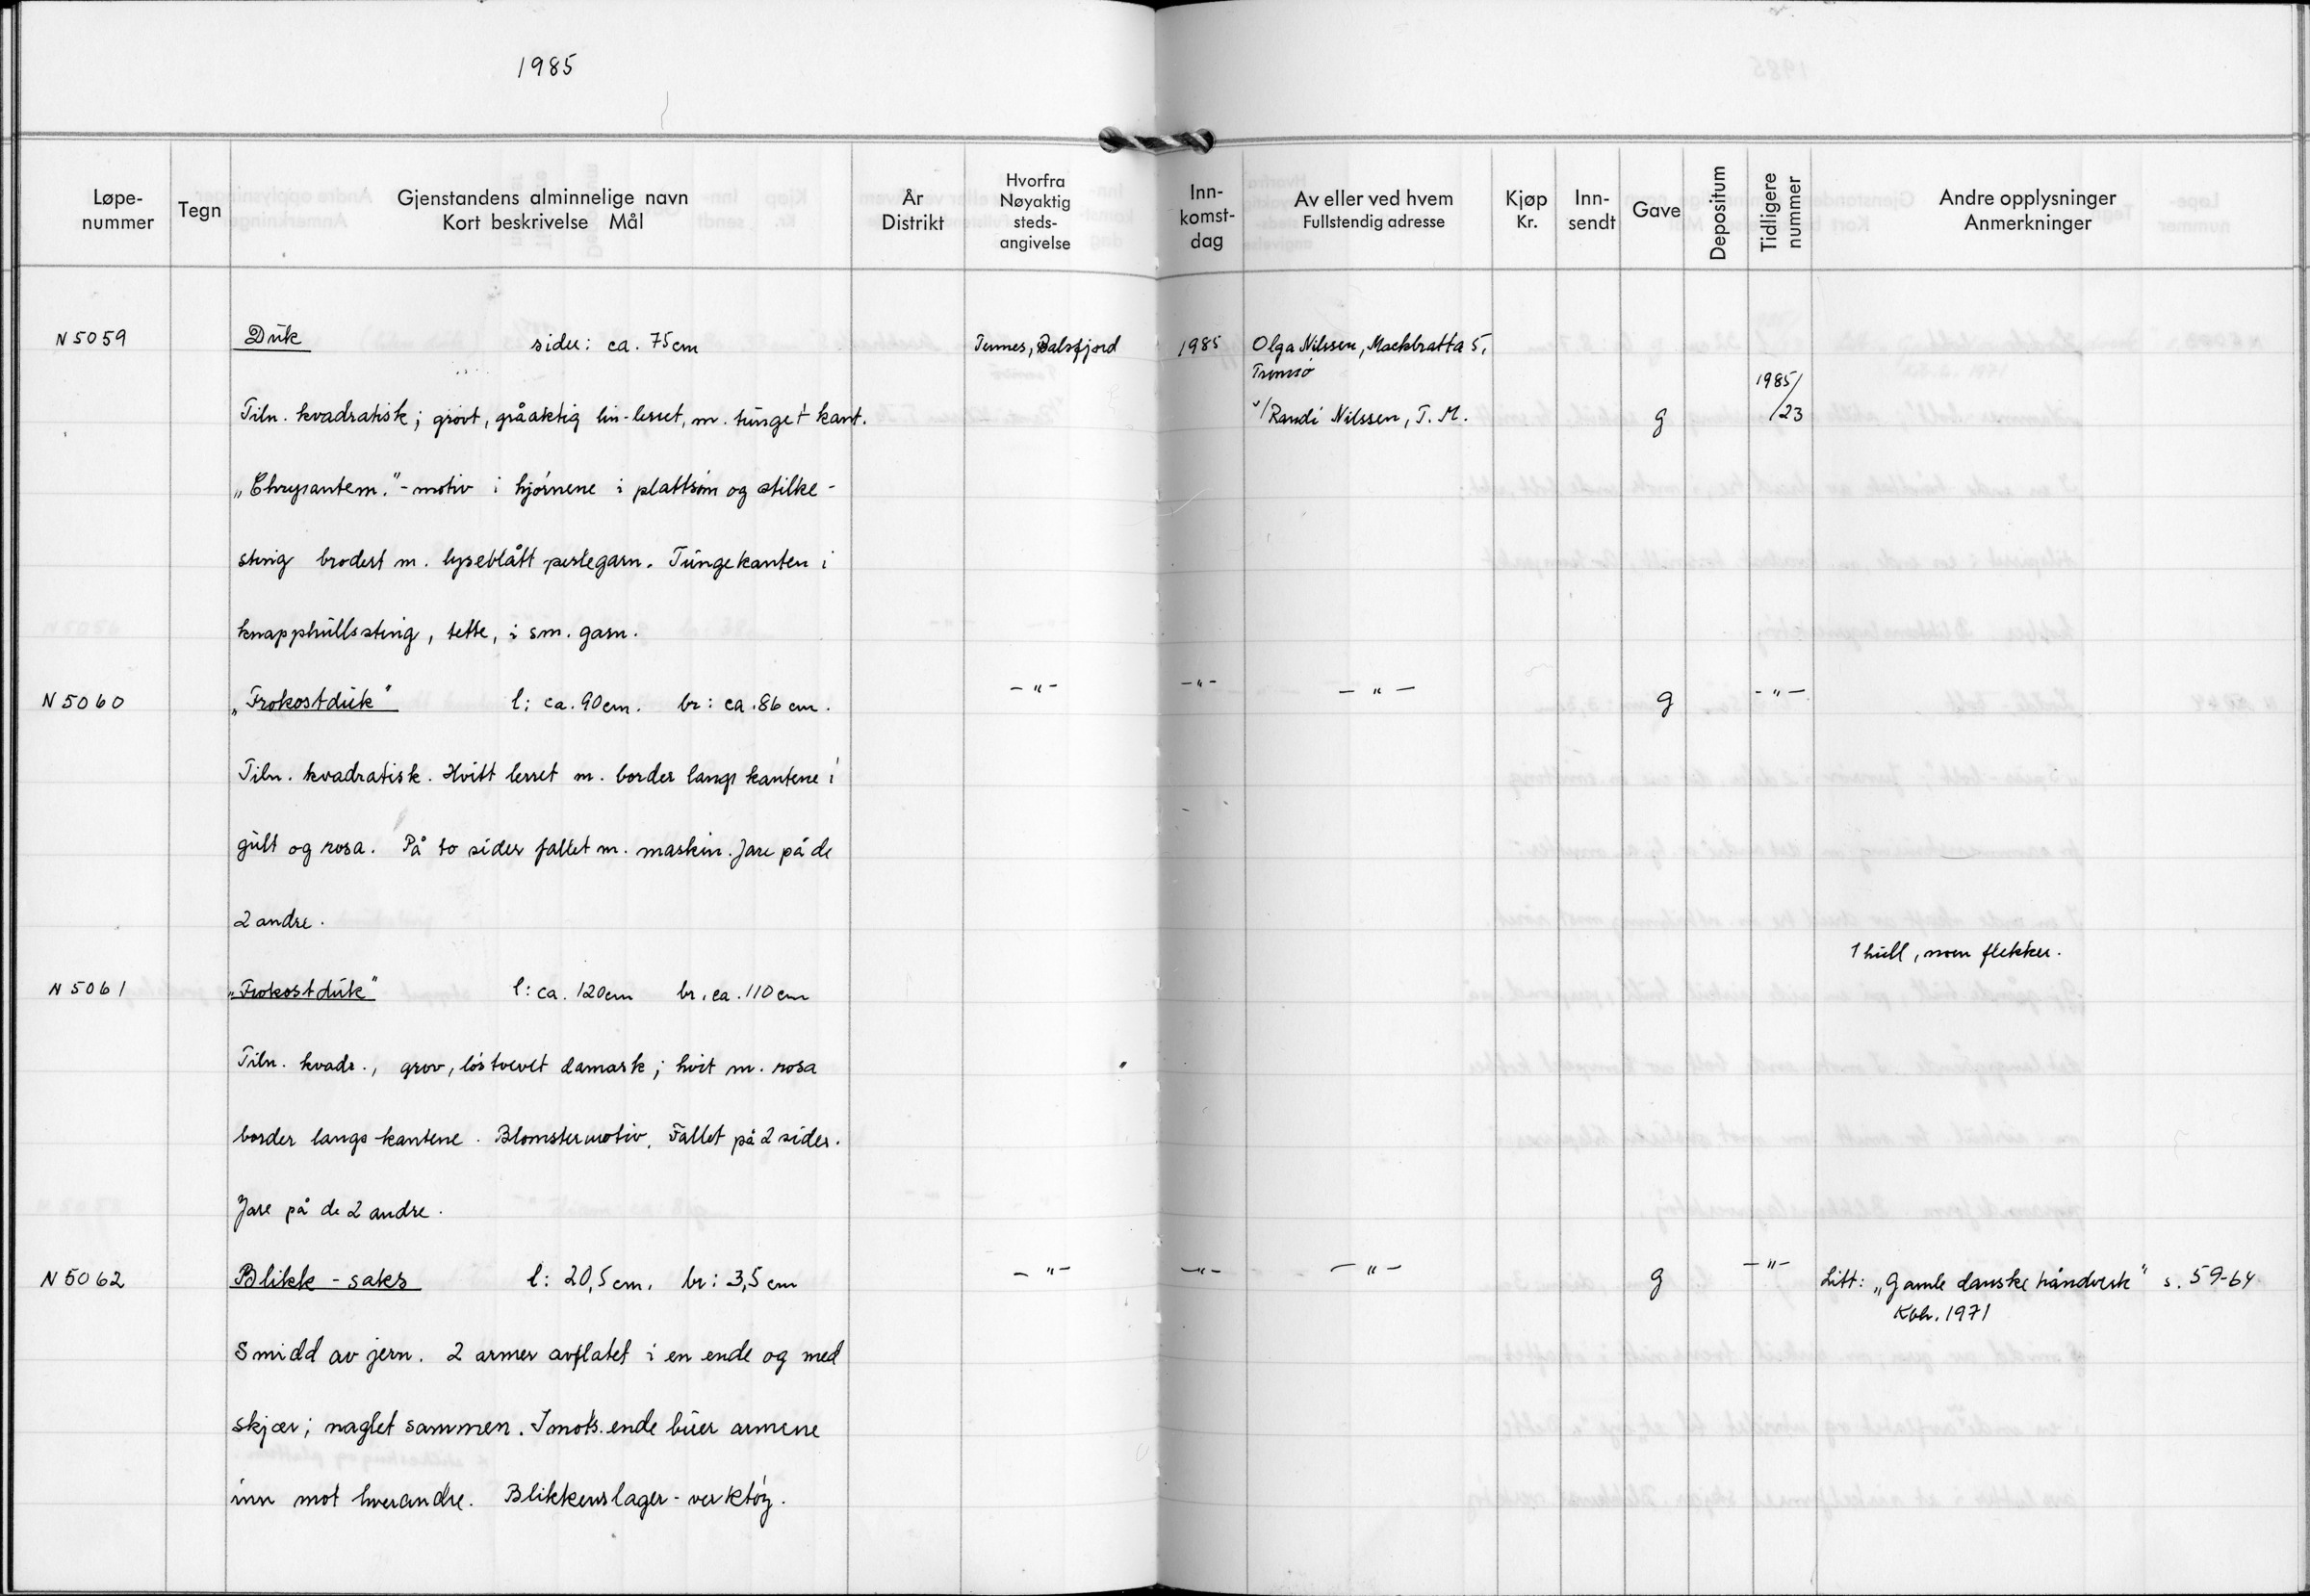 1985
Løpe-
nummer
Tegn
Gjenstandens alminnelige navn
Kort beskrivelse Mål
År
Distrikt
Hvorfra
Nøyaktig
steds-
angivelse
Inn-
komst-
dag
Av eller ved hvem
Fullstendig adresse
Kjøp
Kr.
Inn-
sendt
Gave
Depositum
Tidligere
nummer
Andre opplysninger
Anmerkninger
N 5059 Duk sider: ca. 75 cm Tennes, Balsfjord 1985 Olga Nilssen, Mackbratta 5,
Tromsø
1985/
Tiln. kvadratisk; grovt, gråaktig lin-lerret, m. tunget kant. v/Randi Nilssen, T. M. g /23
„Chrysantem."-motiv i hjørnene i plattsøm og stilke-
sting brodert m. lyseblått perlegarn. Tungekanten i
knapphullssting, tette, i sm. garn.
N 5060 „Frokostduk" l: ca. 90 cm. br: ca. 86 cm. -"- -"- -"- g -"-
Tiln. kvadratisk. Hvitt lerret m. border langs kantene i
gult og rosa. På to sider fallet m. maskin. Jare på de
2 andre.
1 hull, noen flekker.
N 5061 „Frokostduk" l: ca. 120 cm br. ca. 110 cm
Tiln. kvadr., grov, løstvevet damask; hvit m. rosa
border langs kantene. Blomstermotiv. Fallet på 2 sider.
Jare på de 2 andre.
N 5062 Blikk-saks l: 20,5 cm. br: 3,5 cm -"- -"- -"- g -"- Litt: „Gamle danske håndverk" s. 59-64
Kbh. 1971
Smidd av jern. 2 armer avflatet i en ende og med
skjær; naglet sammen. I mots. ende buer armene
inn mot hverandre. Blikkenslager-verktøy.